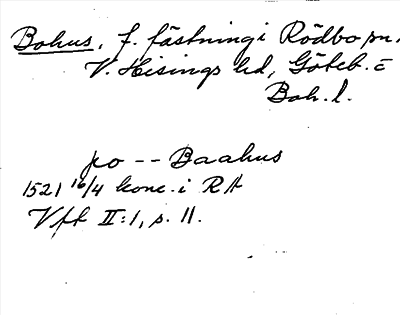 Bohus, f. fästning i Rödbo sn,
V. Hisings hd, Göteb. o
Boh. l.
po -- Baahus
1521 16/4 konc. i RA
Vff II:1, s. 11.